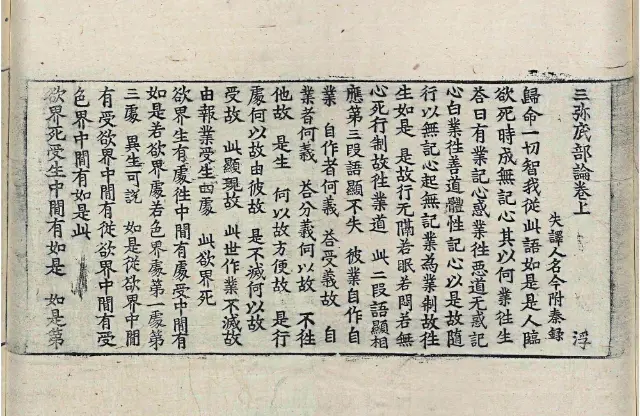 三弥底部論卷上
失譯人名今附秦録 浮
歸命一切智我從此語如是是人臨
欲死時成無記心其以何業徃生
荅曰有業記心惑業徃惡道无惑記
心白業徃善道體性記心以是故随
行以無記心起無記業為業制故徃
生如是 是故行无隔若眠若悶若無
心死行制故徃業道 此二段語顯相
應第三段語顯不失 彼業自作自
業 自作者何義 荅受義故 自
業者何義 荅分義何以故 不徃
他故 是生 何以故方便故 是行
處何以故由彼故 是不滅何以故
受故 此顯現故 此世作業不滅故
由報業受生四處 此欲界死
欲界生有處徃中間有處受中間有
如是若欲界處若色界處第一處第
三處 異生可說 如是從欲界中間
有受欲界中間有從欲界中間有受
色界中間有如是此
欲界死受生中間有如是 如是第